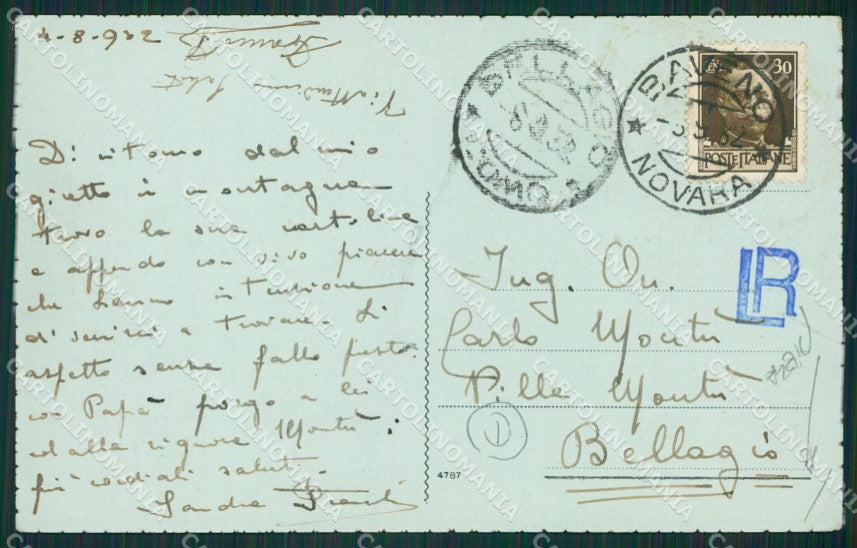 4-8-932
Di ritorno dal mio
giretto in montagna
trovo la sua cartolina
e apprendo con vivo piacere
che hanno intenzione
di venirci a trovare. Li
aspetto senza fallo presto.
con Papà porgo a lei
ed alla signora Montù i
più cordiali saluti
Sandra
BELLAGIO
COMO
BAVENO
NOVARA
30
POSTE ITALIANE
LR
Ing. On.
Carlo Montù
Villa Montù
Bellagio
1
4787
CARTOLINOMANIA